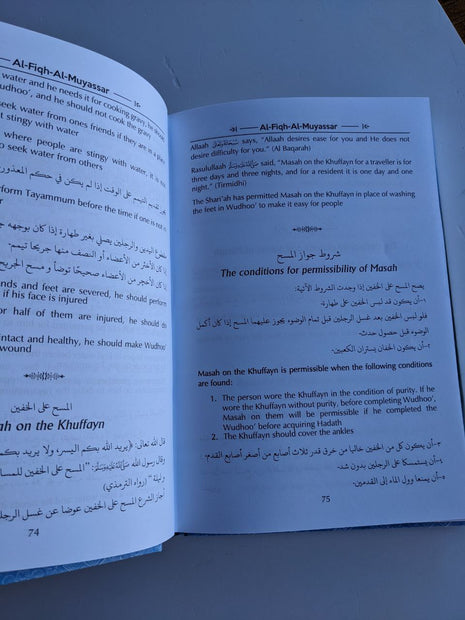 Al-Fiqh-Al-Muyassar
water and he needs it for cooking gravy, he should
Wudhoo', and he should not cook the gravy
seek water from ones friends if they are in a place
t stingy with water
where people are stingy with water, it is
to seek water from others
Tayammum before the time if one is not
nds and feet are severed, he should perform
if his face is injured
or half of them are injured, he should do
intact and healthy, he should make Wudhoo'
wound
المسح على الخفين
ah on the Khuffayn
قال الله تعالى:
74
Al-Fiqh-Al-Muyassar
Allaah says, "Allaah desires ease for you and He does not
desire difficulty for you." (Al Baqarah)
Rasulullaah said, "Masah on the Khuffayn for a traveller is for
three days and three nights, and for a resident it is one day and one
night." (Tirmidhi)
The Shari'ah has permitted Masah on the Khuffayn in place of washing
the feet in Wudhoo' to make it easy for people
شروط جواز المسح
The conditions for permissibility of Masah
يصح المسح على الخفين إذا وجدت الشروط الآتية:
١-أن يكون قد لبس الخفين على طهارة.
فلو لبس الخفين بعد غسل الرجلين قبل تمام الوضوء يجوز عليهما المسح إذا كان أكمل
الوضوء قبل حصول حدث.
٢-أن يكون الخفان يستران الكعبين.
Masah on the Khuffayn is permissible when the following conditions
are found:
1. The person wore the Khuffayn in the condition of purity. If he
wore the Khuffayn without purity, before completing Wudhoo',
Masah on them will be permissible if he completed the
Wudhoo' before acquiring Hadath
2. The Khuffayn should cover the ankles
٣-أن يكون كل من الخفين خاليا من خرق قدر ثلاث أصابع من أصغر أصابع القدم.
٤-أن يستمسكا على الرجلين بدون شد.
٥-أن يمنعا وصول الماء إلى القدمين.
75